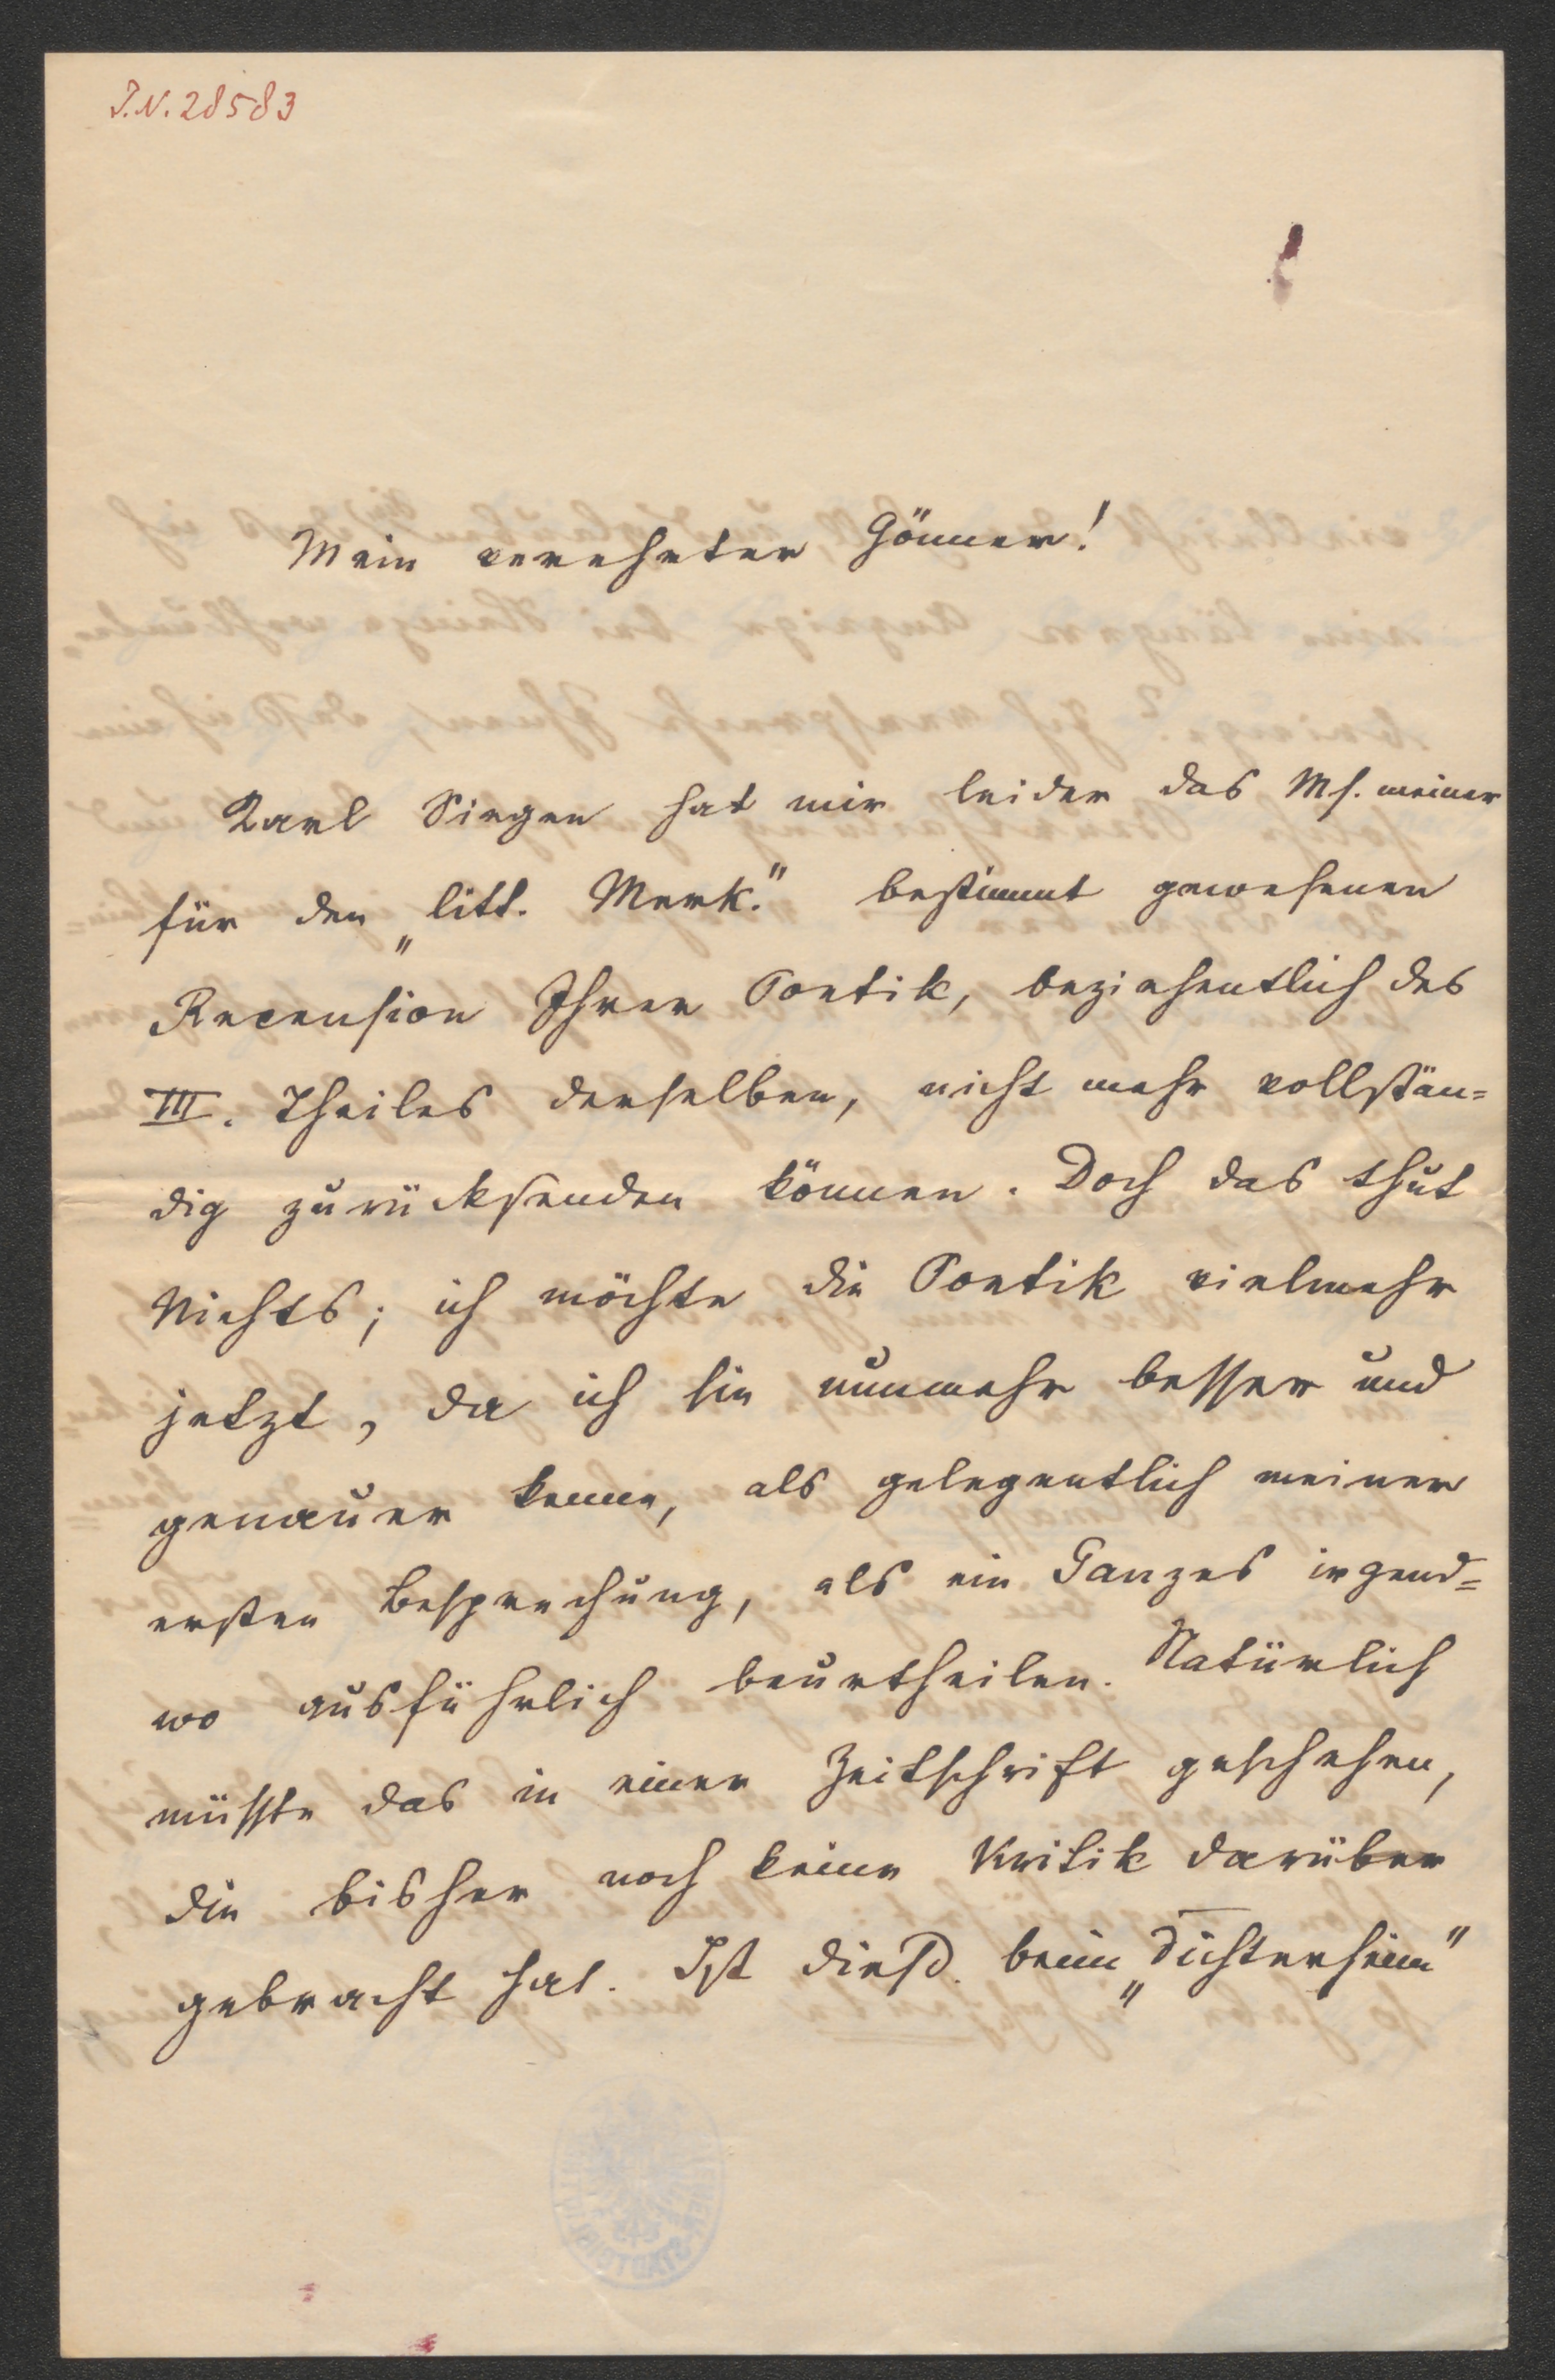 J.N. 28583
Mein verehrter Gönner!
Karl Siegen hat mir leider das Ms. meiner
für den „litt. Merk." bestimmt gewesenen
Recension Ihrer Poetik, beziehentlich des
III. Theiles derselben, nicht mehr vollstän=
dig zurücksenden können. Doch das thut
Nichts; ich möchte die Poetik vielmehr
jetzt, da ich sie nunmehr besser und
genauer kenne, als gelegentlich meiner
ersten Besprechung, als ein Ganzes irgend=
wo ausführlich beurtheilen. Natürlich
müsste das in einer Zeitschrift geschehen,
die bisher noch keine Kritik darüber
gebracht hat. Ist dieß beim „Dichterheim"